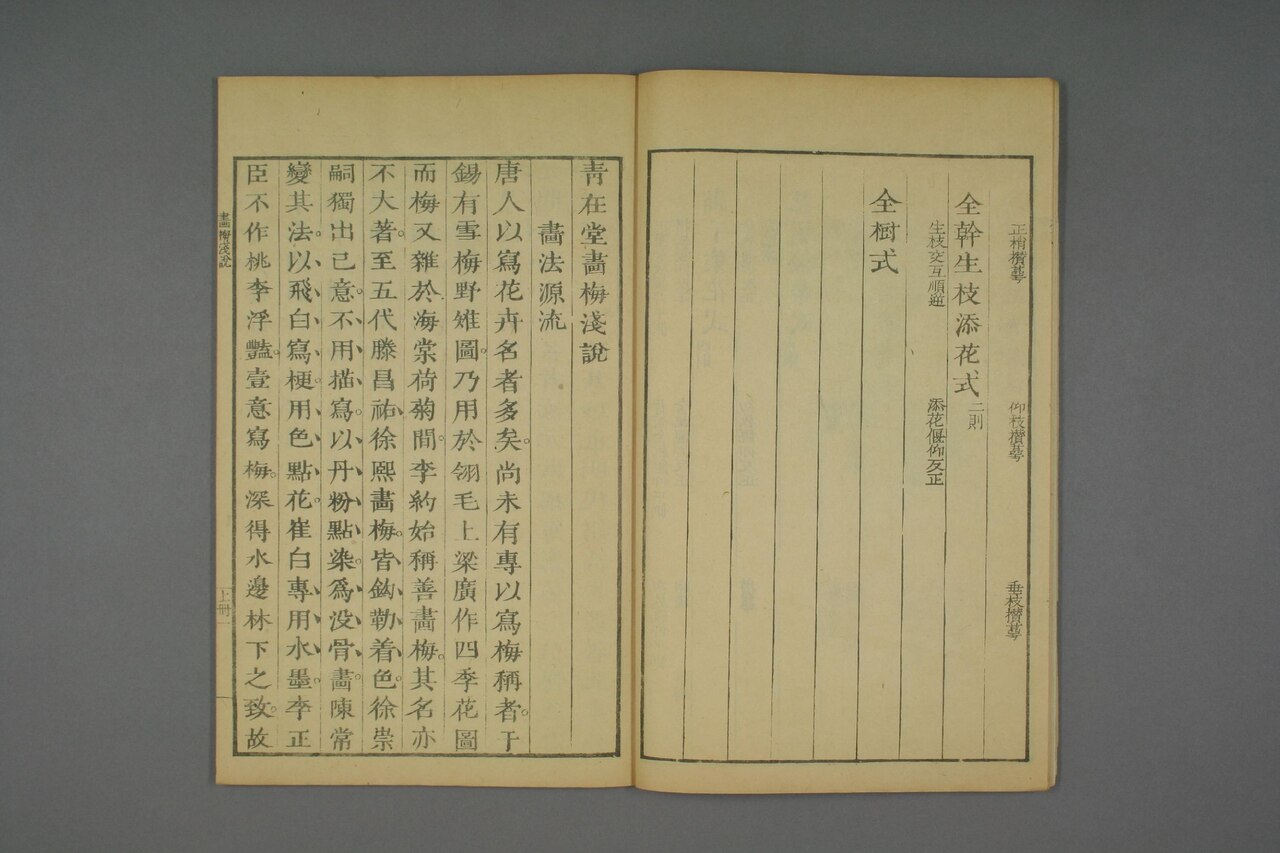 正梢攢萼 仰枝攢萼 垂枝攢萼
全幹生枝添花式二則
生枝交互順逆 添花偃仰反正
全樹式
青在堂畫梅淺說
畫法源流
唐人以寫花卉名者多矣。尚未有專以寫梅稱者。于
錫有雪梅野雉圖。乃用於翎毛上梁廣作四季花圖
而梅又雜於海棠荷菊間。李約始稱善畫梅。其名亦
不大著。至五代滕昌祐、徐熙畫梅。皆鈎勒着色。徐崇
嗣獨出己意。不用描寫。以丹粉點染。爲没骨畫。陳常
變其法。以飛白寫梗。用色點花。崔白專用水墨。李正
臣不作桃李浮豔。壹意寫梅。深得水邊林下之致。故
畫梅淺說
上冊
一